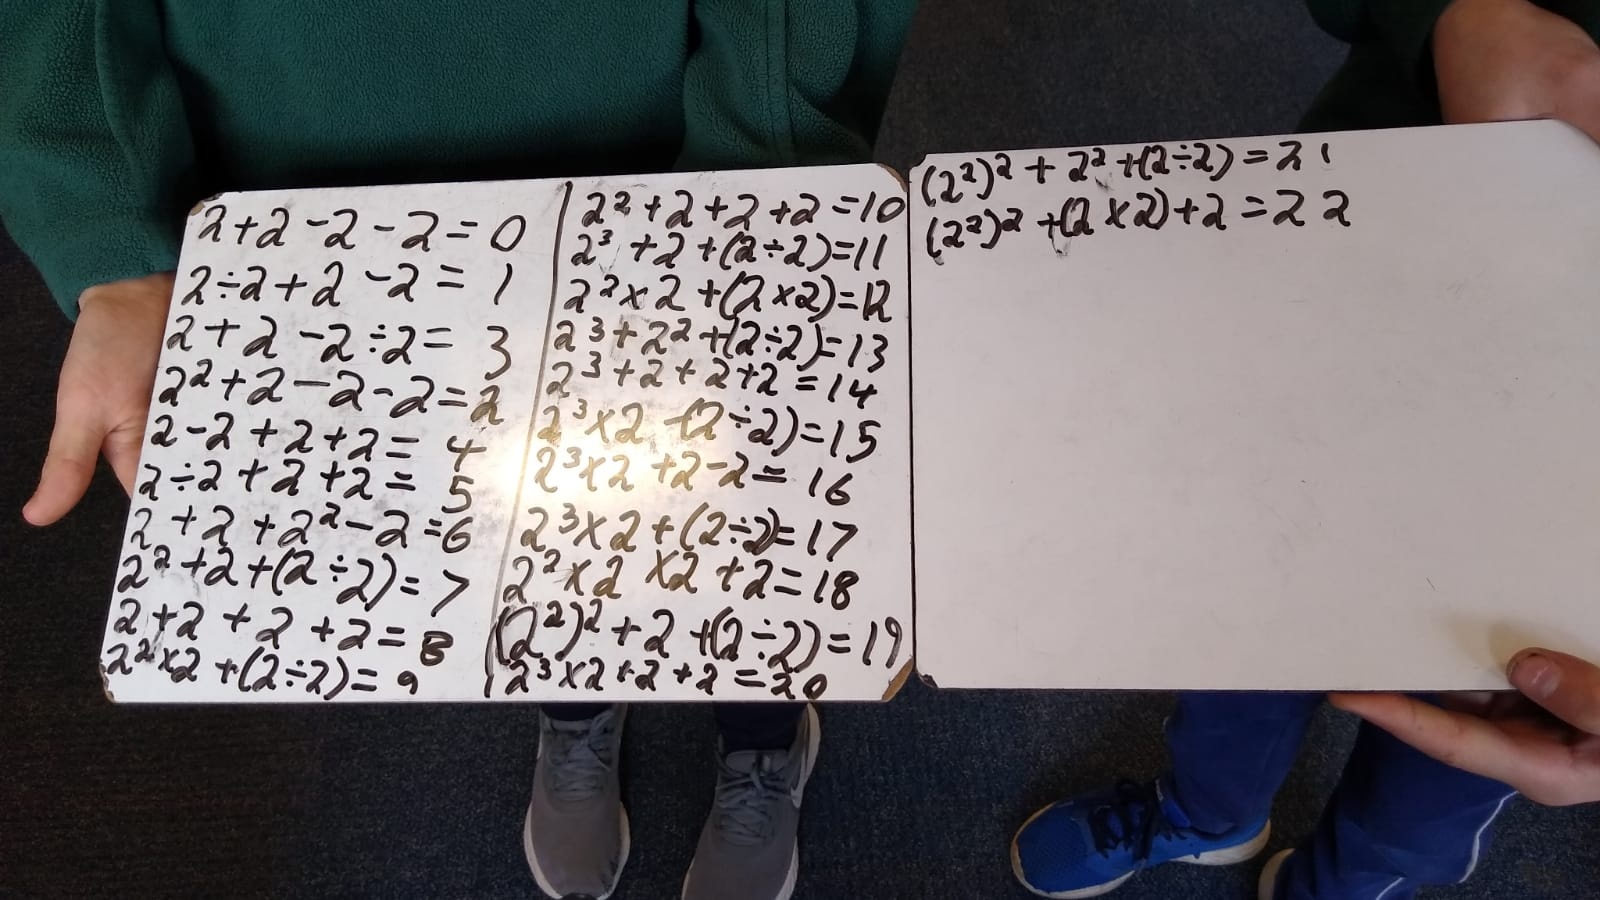 2+2-2-2=0
2÷2+2-2=1
2+2-2÷2=3
2²+2-2-2=2
2-2+2+2=4
2÷2+2+2=5
2+2+2²-2=6
2²+2+(2÷2)=7
2+2+2+2=8
2²×2+(2÷2)=9
2²+2+2+2=10
2³+2+(2÷2)=11
2²×2+(2×2)=12
2³+2²+(2÷2)=13
2³+2+2+2=14
2³×2-(2÷2)=15
2³×2+2-2=16
2³×2+(2÷2)=17
2²×2×2+2=18
(2²)²+2+(2÷2)=19
2³×2+2+2=20
(2²)²+2²+(2÷2)=21
(2²)²+(2×2)+2=22